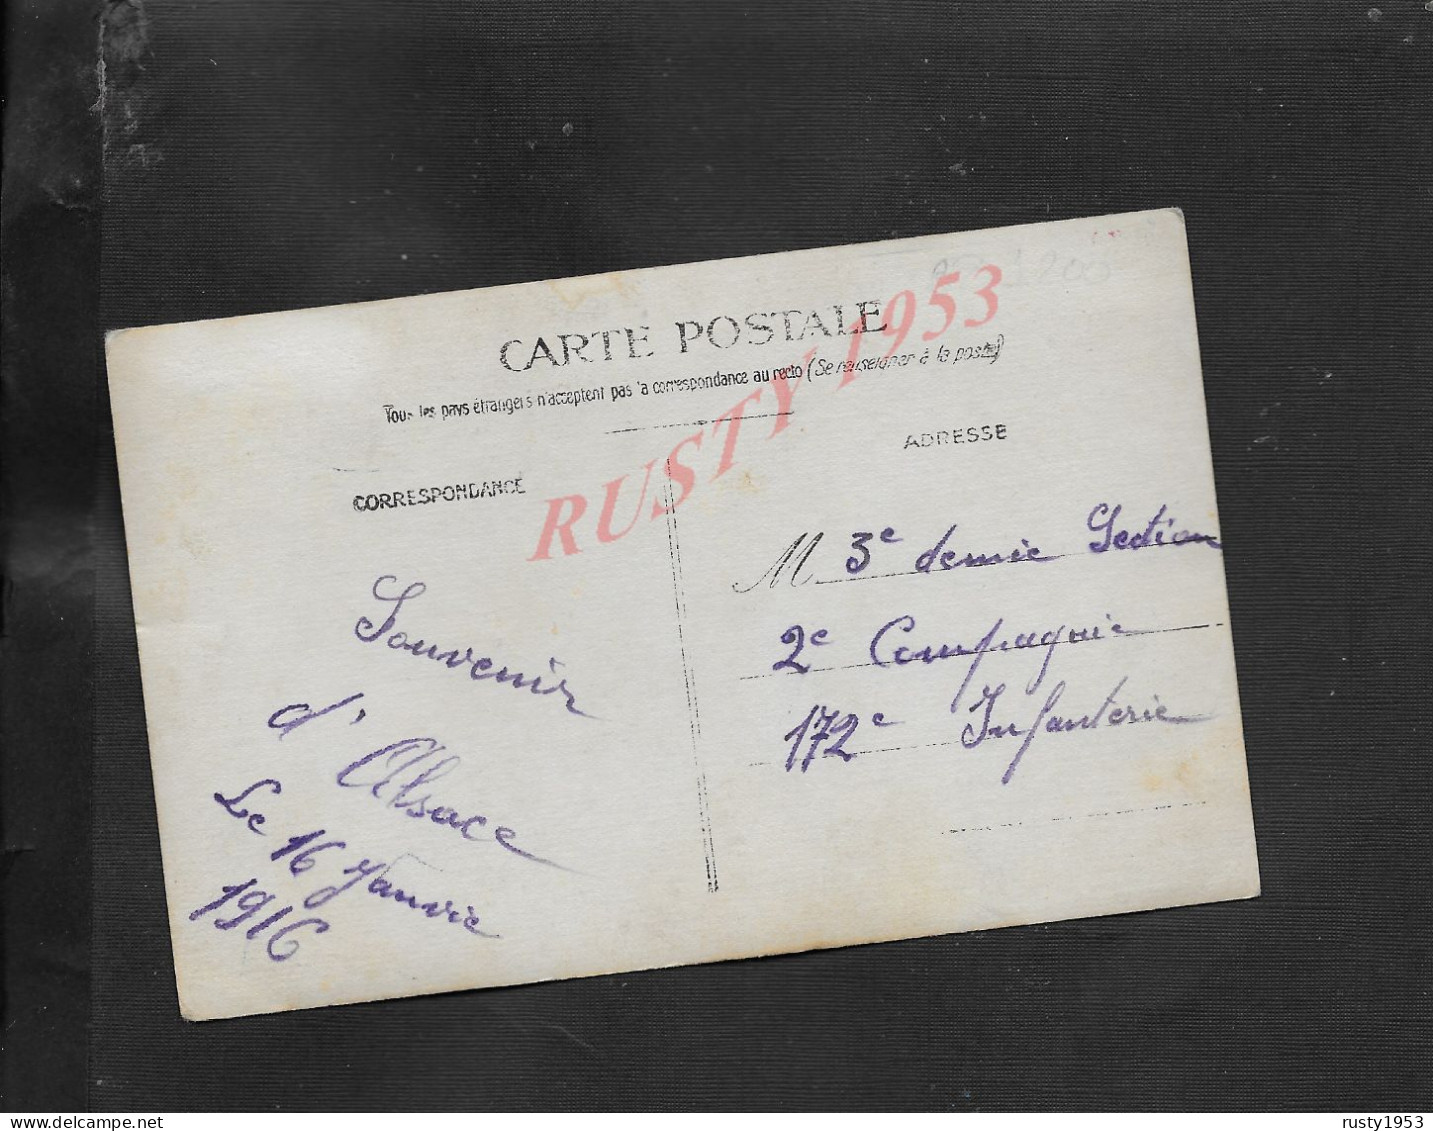 CARTE POSTALE
Tous les pays étrangers n'acceptent pas la correspondance au recto (Se renseigner à la poste)
CORRESPONDANCE
ADRESSE
Souvenir
d'Alsace
Le 16 Janvie
1916
M 3e demie Section
2e Compagnie
172e Infanterie
RUSTY 1953
rusty1953